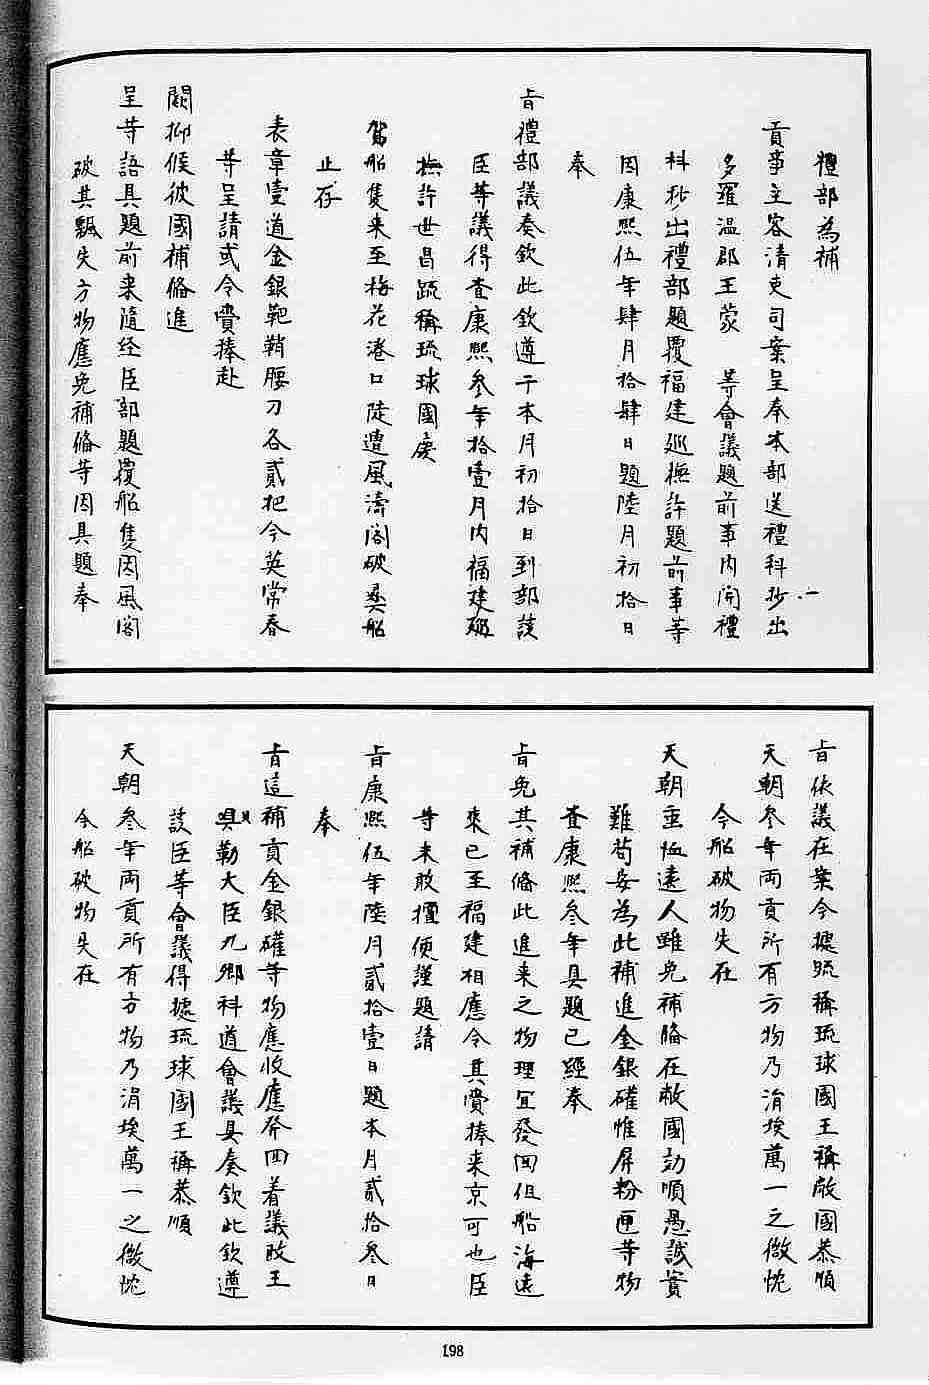 禮部為補
貢事主客清吏司案呈奉本部送禮科抄出
多羅溫郡王蒙　等會議題前事内開禮
科抄出禮部題覆福建巡撫許題前事等
因康熙伍年肆月拾肆日題陸月初拾日
奉
旨禮部議奏欽此欽遵于本月初拾日到部該
臣等議得查康熙叄年拾壹月内福建廵
撫許世昌疏稱琉球國慶
賀船隻来至梅花港口陡遭風濤閣破奠船
止存
表章壹道金銀靶鞘腰刀各貳把今英常春
等呈請或令賫捧赴
闕抑候彼國補俻進
呈等語具題前来隨经臣部題覆船隻因風閣
破其飄失方物應免補俻等因具題奉
旨依議在案今據疏稱琉球國王稱敝國恭順
天朝叄年両貢所有方物乃涓埃萬一之微忱
今船破物失在
天朝垂恤遠人雖免補俻在敝國効順愚誠實
難苟安為此補進金銀礶惟屏粉匣等物
查康熙叄年具題已經奉
旨免其補俻此進来之物理宜發回但船海遠
來已至福建相應令其賫捧来京可也臣
等未敢擅便謹題請
旨康熙伍年陸月貳拾壹日題本月貳拾叁日
奉
旨這補貢金銀礶等物應收應發回着議政王
貝勒大臣九卿科道會議具奏欽此欽遵
該臣等會議得據琉球國王稱恭順
天朝叄年両貢所有方物乃涓埃萬一之微忱
今船破物失在
198